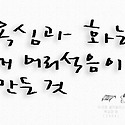 욕심과 화는
저 어리석음이
만든 것